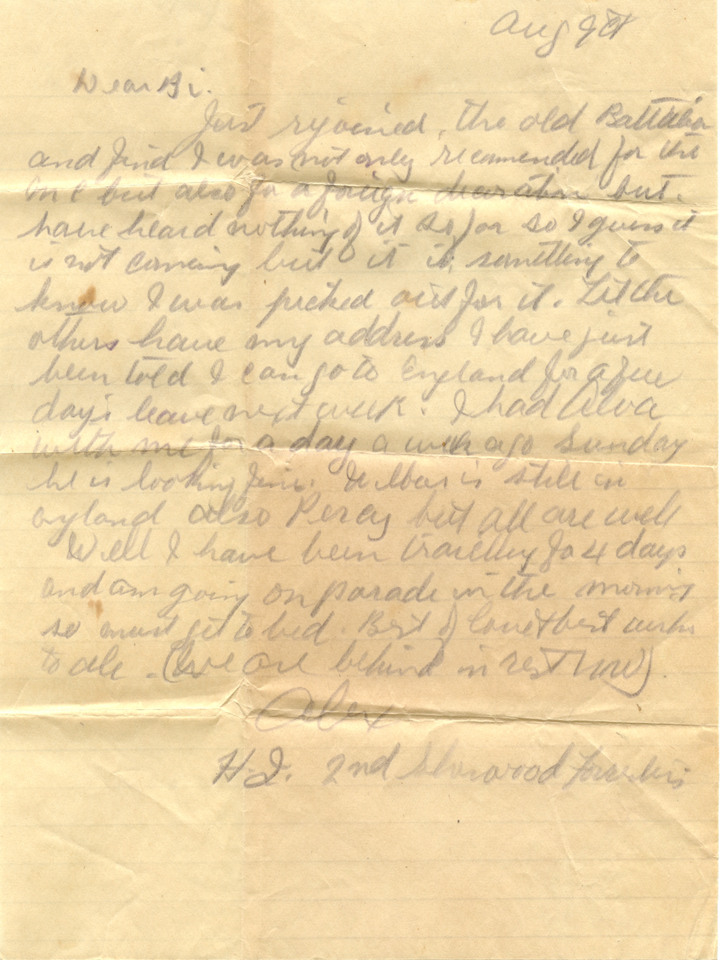 Aug 9th
Dear Bi.
Just rejoined, the old Battalion
and find I was not only recomended for the
M C but also for a foreign decoration but.
have heard nothing of it so far so I guess it
is not coming but it is something to
know I was picked out for it. Let the
others have my address I have just
been told I can go to England for a few
days leave next week. I had Alva
with me for a day a week ago Sunday
he is looking fine. Wilbur is still in
England also Percy but all are well
Well I have been travelling for 4 days
and am going on parade in the morning
so must get to bed. Best of love & best wishes
to all - (we are behind in rest now)
Alex
2nd Sherwood Foresters